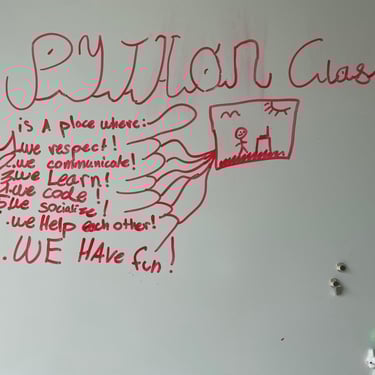 PYTHON Clas
is A place where:
1.we respect!
2.we communicate!
3.we Learn!
4.we code!
5.we socialize!
.we Help each other!
.WE HAve fun!